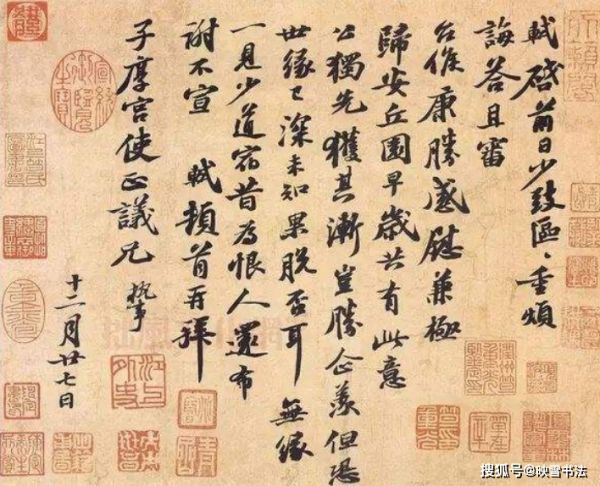 軾啓前日少致區〻重煩
誨答且審
台候康勝感慰兼極
歸安丘園早歲共有此意
公獨先獲其漸豈勝企羨但恐
世緣已深未知果脫否耳 無緣
一見少道宿昔為恨人還布
謝不宣 軾頓首再拜
子厚宮使正議兄 執事
十二月廿七日
搜狐号@映雪书法